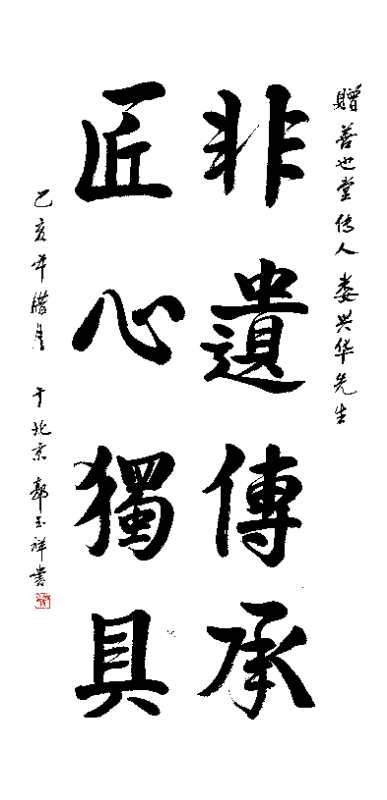 贈善世堂传人娄兴华先生
非遺傳承
匠心獨具
己亥年腊月 于北京 郭玉祥書